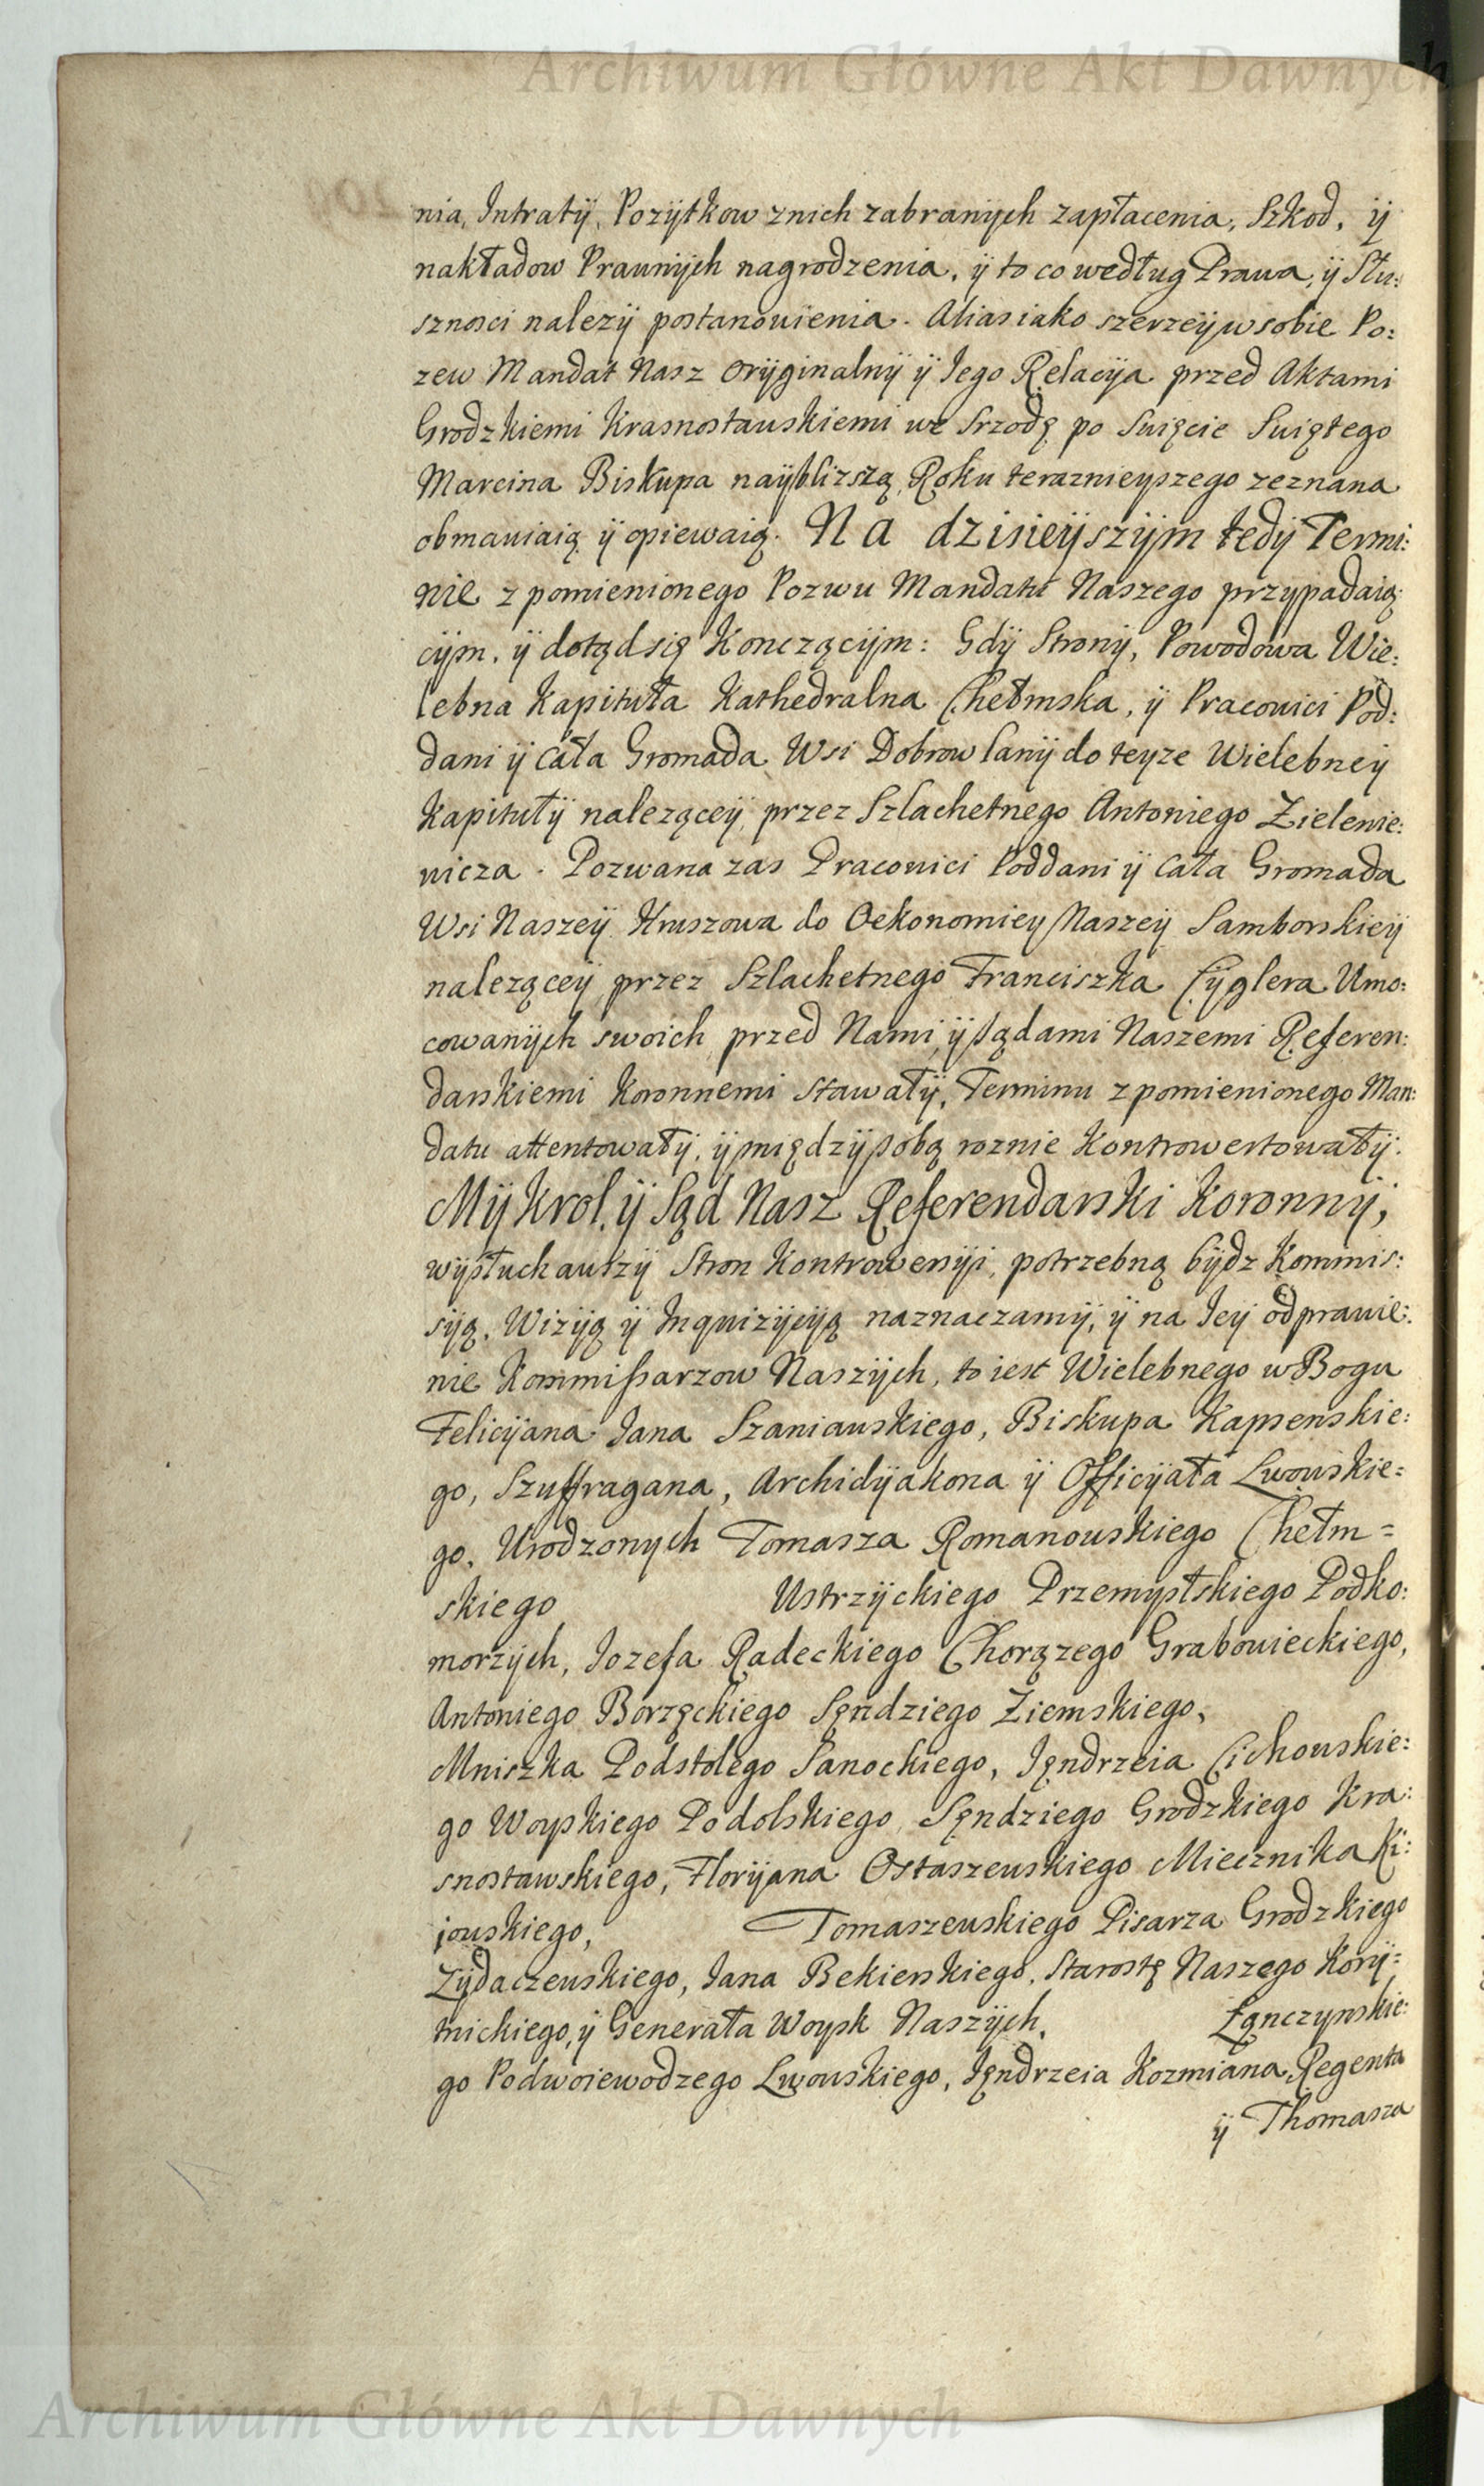 Archiwum Główne Akt Dawnych
nia, Intratÿ, Pozÿtkow znich zabranÿch zapłacenia, Szkod, ÿ
nakładow Prawnÿch nagrodzenia, ÿ to co według Prawa, ÿ Słu:
sznosci nalezÿ postanowienia. Alias iako szerzeÿ w sobie Po:
zew Mandat Nasz Orÿginalnÿ ÿ Iego Relacÿa przed Aktami
Grodzkiemi Krasnostawskiemi we Srzodę po Swięcie Swiętego
Marcina Biskupa naÿblizszą, Roku teraznieyszego zeznana
obmawiaią ÿ opiewaią. Na dzisieÿszÿm tedÿ Termi:
nie z pomienionego Pozwu Mandatu Naszego przypadaią:
cÿm, ÿ dotąd się Konczącÿm: Gdÿ Stronÿ, Powodowa Wie:
lebna Kapituła Kathedralna Chełmska, ÿ Pracowici Pod:
dani ÿ cała Gromada Wsi Dobrowlanÿ do teyze Wielebneÿ
Kapitułÿ naleząceÿ, przez Szlachetnego Antoniego Zielenie:
wicza. Pozwana zas Pracowici Poddani ÿ cała Gromada
Wsi Naszeÿ Hruszowa do Oekonomiey Naszeÿ Samborskieÿ
naleząceÿ, przez Szlachetnego Franciszka Cÿglera Umo:
cowanÿch swoich, przed Nami, ÿ Sądami Naszemi Referen:
darskiemi Koronnemi stawałÿ, Terminu z pomienionego Man:
datu attentowałÿ, ÿ międzÿ sobą roznie Kontrowertowałÿ.
Mÿ Krol, ÿ Sąd Nasz Referendarski Koronnÿ,
wÿsłuchawszÿ Stron Kontrowersÿi, potrzebną bÿdz Kommis:
sÿą, Wizÿą ÿ Inquizÿcÿą naznaczamÿ, ÿ na Ieÿ odprawie:
nie Kommissarzow Naszÿch, to iest Wielebnego w Bogu
Felicÿana Iana Szaniawskiego, Biskupa Kamenskie:
go, Szuffragana, Archidÿakona ÿ Officÿała Lwowskie=
go, Urodzonych Tomasza Romanowskiego Chełm=
skiego Ustrzÿckiego Przemysłskiego Podko:
morzÿch, Iozefa Radeckiego Chorązego Grabowieckiego,
Antoniego Borzęckiego Sęndziego Ziemskiego,
Mniszka Podstolego Sanockiego, Jęndrzeia Cichowskie:
go Woyskiego Podolskiego, Sęndziego Grodzkiego Kra:
snostawskiego, Florÿana Ostaszewskiego Miecznika Ki:
jowskiego, Tomaszewskiego Pisarza Grodzkiego
Zÿdaczewskiego, Iana Bekierskiego, Starostę Naszego Korÿ=
tnickiego, ÿ Generała Woysk Naszÿch, Łąnczynskie:
go Podwoiewodzego Lwowskiego, Jęndrzeia Kozmiana Regenta
ÿ Thomasza
Archiwum Główne Akt Dawnych